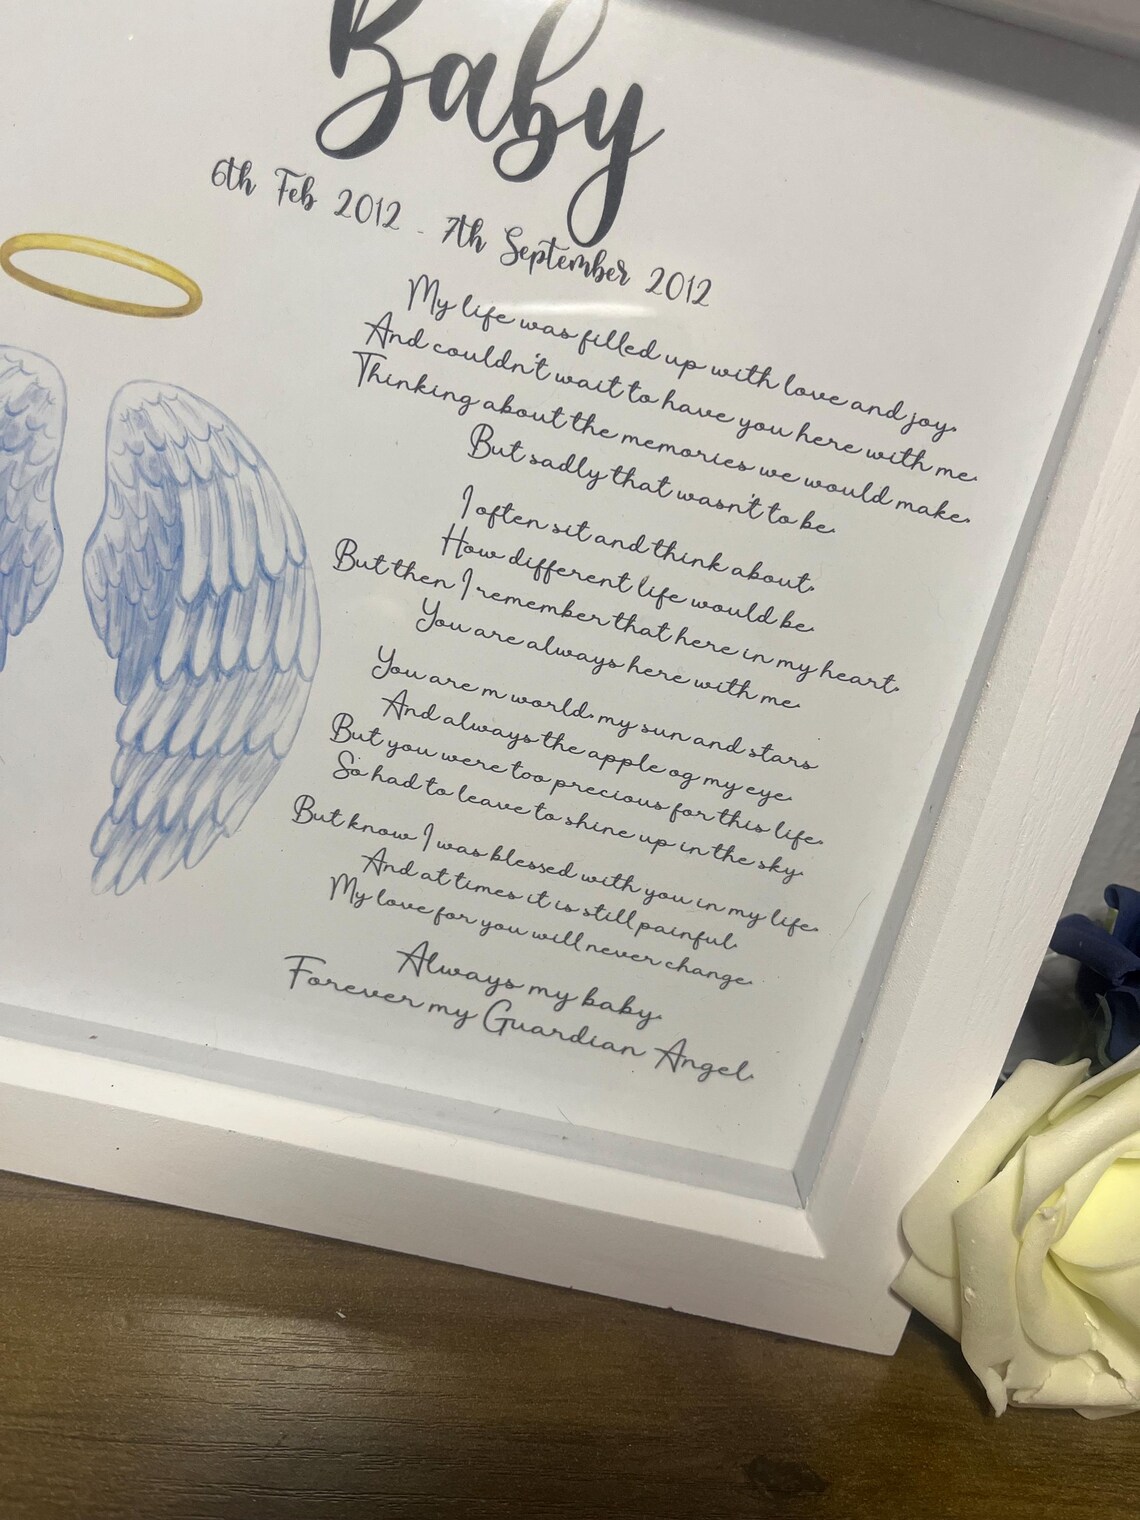 Baby
6th Feb 2012 - 7th September 2012
My life was filled up with love and joy.
And couldn't wait to have you here with me.
Thinking about the memories we would make.
But sadly that wasn't to be.
I often sit and think about.
How different life would be.
But then I remember that here in my heart.
You are always here with me.
You are m world. my sun and stars
And always the apple og my eye.
But you were too precious for this life.
So had to leave to shine up in the sky.
But know I was blessed with you in my life.
And at times it is still painful.
My love for you will never change.
Always my baby.
Forever my Guardian Angel.